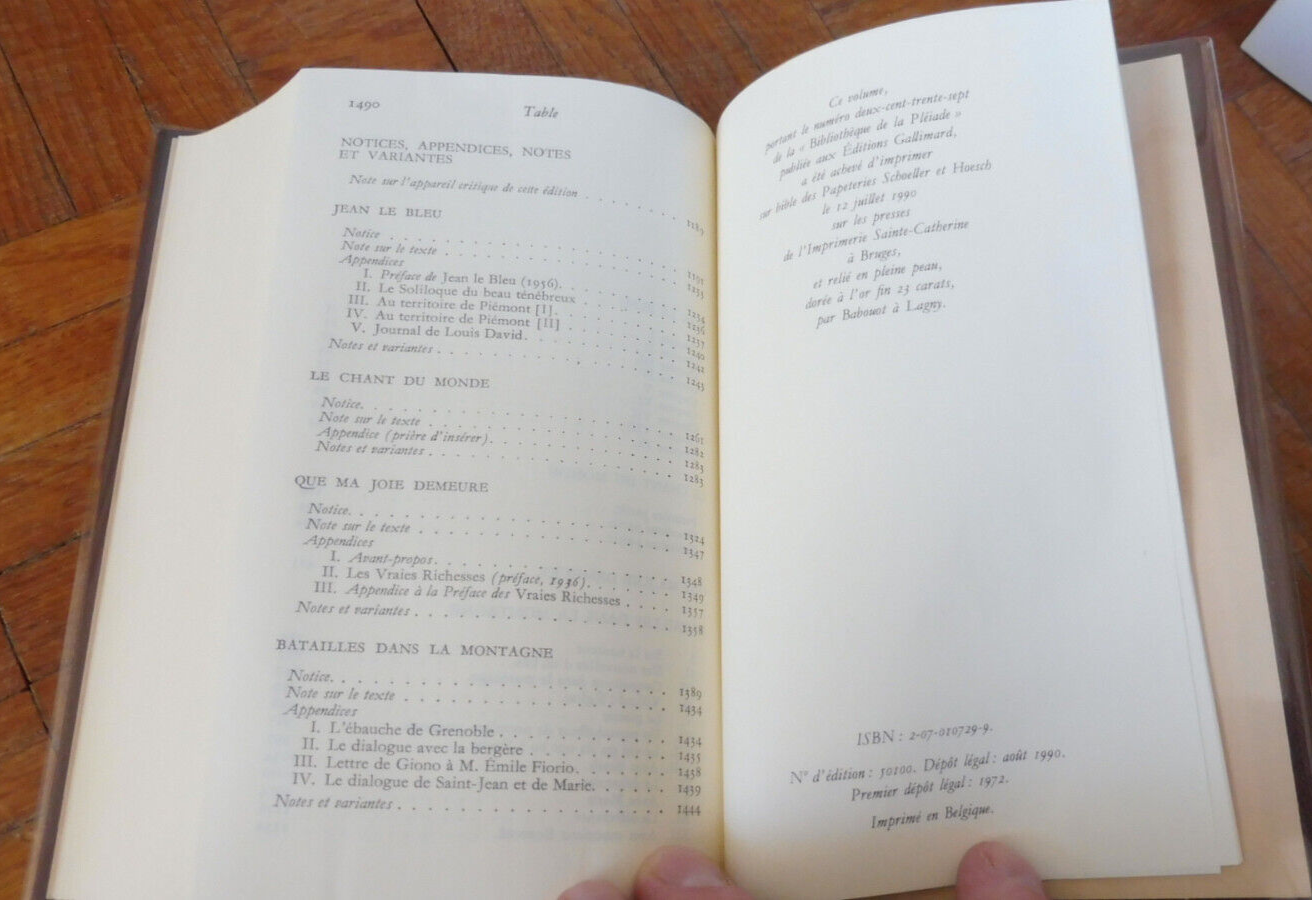 1490
Table
NOTICES, APPENDICES, NOTES
ET VARIANTES
Note sur l'appareil critique de cette édition . . . . . . . . 1189
JEAN LE BLEU
Notice . . . . . . . . 1191
Note sur le texte . . . . . . . . 1235
Appendices
I. Préface de Jean le Bleu (1956). . . . . . . . 1234
II. Le Soliloque du beau ténébreux . . . . . . . . 1236
III. Au territoire de Piémont [I]. . . . . . . . 1237
IV. Au territoire de Piémont [II] . . . . . . . . 1240
V. Journal de Louis David. . . . . . . . 1241
Notes et variantes . . . . . . . . 1243
LE CHANT DU MONDE
Notice. . . . . . . . 1261
Note sur le texte . . . . . . . . 1282
Appendice (prière d'insérer). . . . . . . . 1283
Notes et variantes . . . . . . . . 1283
QUE MA JOIE DEMEURE
Notice. . . . . . . . 1324
Note sur le texte . . . . . . . . 1347
Appendices
I. Avant-propos. . . . . . . . 1348
II. Les Vraies Richesses (préface, 1936). . . . . . . . 1349
III. Appendice à la Préface des Vraies Richesses . . . . 1357
Notes et variantes . . . . . . . . 1358
BATAILLES DANS LA MONTAGNE
Notice. . . . . . . . 1389
Note sur le texte . . . . . . . . 1434
Appendices
I. L'ébauche de Grenoble . . . . . . . . 1434
II. Le dialogue avec la bergère . . . . . . . . 1435
III. Lettre de Giono à M. Émile Fiorio. . . . . . . . 1438
IV. Le dialogue de Saint-Jean et de Marie. . . . . . . . 1439
Notes et variantes . . . . . . . . 1444
Ce volume,
portant le numéro deux-cent-trente-sept
de la « Bibliothèque de la Pléiade »
publiée aux Éditions Gallimard,
a été achevé d'imprimer
sur bible des Papeteries Schoeller et Hoesch
le 12 juillet 1990
sur les presses
de l'Imprimerie Sainte-Catherine
à Bruges,
et relié en pleine peau,
dorée à l'or fin 23 carats,
par Babouot à Lagny.
ISBN : 2-07-010729-9.
N° d'édition : 50100. Dépôt légal : août 1990.
Premier dépôt légal : 1972.
Imprimé en Belgique.